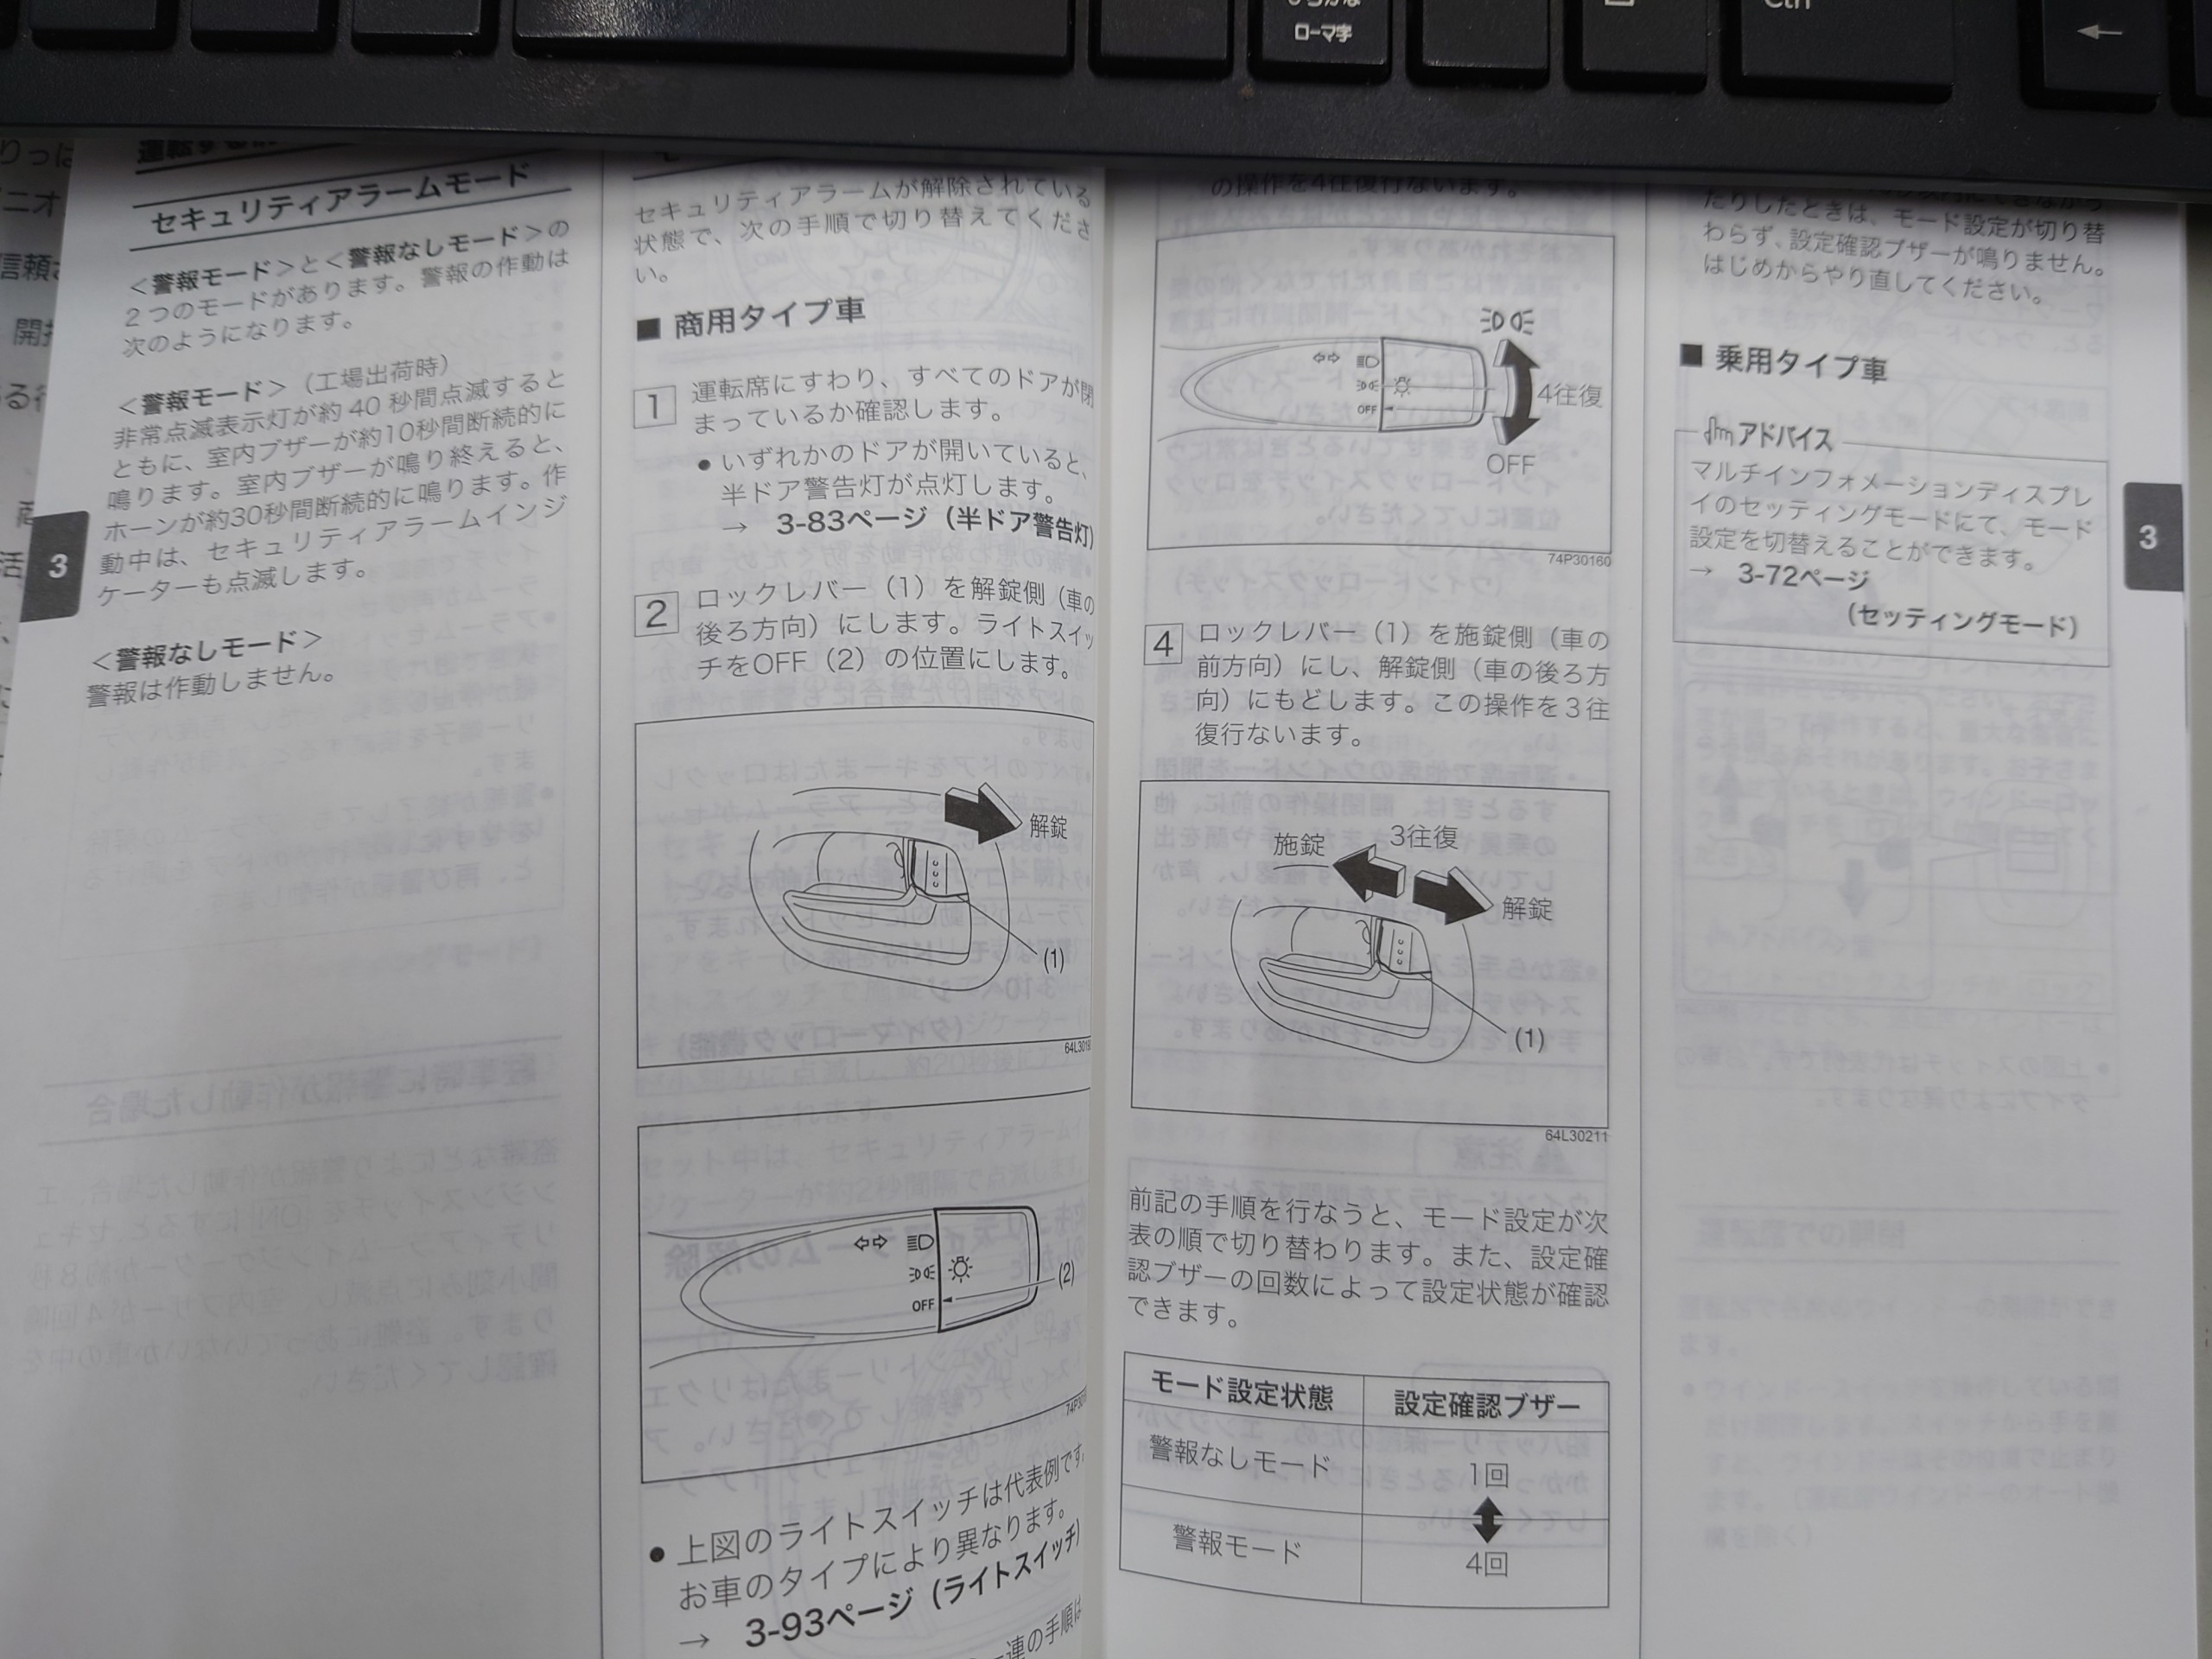 ローマ字
Ctrl
←
セキュリティアラームモード
＜警報モード＞と＜警報なしモード＞の
２つのモードがあります。警報の作動は
次のようになります。
＜警報モード＞（工場出荷時）
非常点滅表示灯が約 40 秒間点滅すると
ともに、室内ブザーが約10秒間断続的に
鳴ります。室内ブザーが鳴り終えると、
ホーンが約30秒間断続的に鳴ります。作
動中は、セキュリティアラームインジ
ケーターも点滅します。
＜警報なしモード＞
警報は作動しません。
3
セキュリティアラームが解除されている
状態で、次の手順で切り替えてくださ
い。
■ 商用タイプ車
1 運転席にすわり、すべてのドアが閉
まっているか確認します。
● いずれかのドアが開いていると、
半ドア警告灯が点灯します。
→ 3-83ページ（半ドア警告灯）
2 ロックレバー（1）を解錠側（車の
後ろ方向）にします。ライトスイッ
チをOFF（2）の位置にします。
解錠
(1)
64L301
OFF
(2)
● 上図のライトスイッチは代表例です。
お車のタイプにより異なります。
→ 3-93ページ（ライトスイッチ）
一連の手順は
の操作を4往復行ないます。
OFF
4往復
OFF
74P30160
4 ロックレバー（1）を施錠側（車の
前方向）にし、解錠側（車の後ろ方
向）にもどします。この操作を３往
復行ないます。
施錠
3往復
解錠
(1)
64L30211
前記の手順を行なうと、モード設定が次
表の順で切り替わります。また、設定確
認ブザーの回数によって設定状態が確認
できます。
モード設定状態 設定確認ブザー
警報なしモード 1回
警報モード 4回
たりしたときは、モード設定が切り替
わらず、設定確認ブザーが鳴りません。
はじめからやり直してください。
■ 乗用タイプ車
アドバイス
マルチインフォメーションディスプレ
イのセッティングモードにて、モード
設定を切替えることができます。
→ 3-72ページ
（セッティングモード）
3